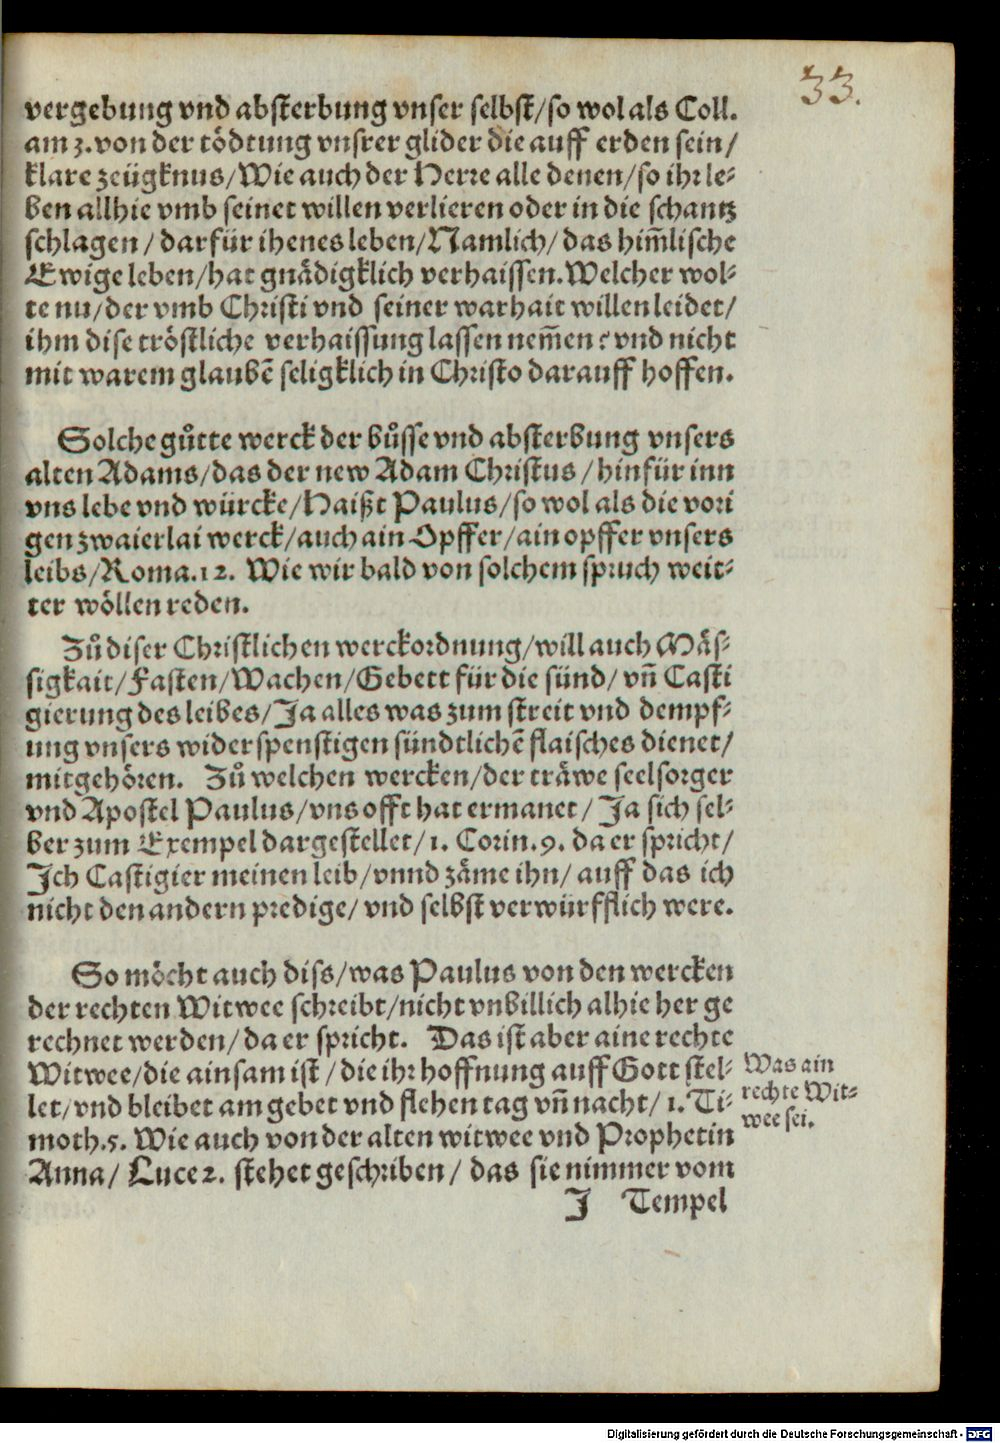 33.
vergebung vnd absterbung vnser selbst/so wol als Coll.
am 3. von der tödtung vnsrer glider die auff erden sein/
klare zeügknus/Wie auch der Herre alle denen/so ihr le-
ben allhie vmb seinet willen verlieren oder in die schantz
schlagen/darfür ihenes leben/Namlich/das him̃lische
Ewige leben/hat gnädigklich verhaissen. Welcher wol-
te nu/der vmb Christi vnd seiner warhait willen leidet/
ihm dise tröstliche verhaissung lassen nem̃en? vnd nicht
mit warem glaubẽ seligklich in Christo darauff hoffen.
Solche gůtte werck der bůsse vnd absterbung vnsers
alten Adams/das der new Adam Christus/hinfür inn
vns lebe vnd würcke/Haißt Paulus/so wol als die vori
gen zwaierlai werck/auch ain Opffer/ain opffer vnsers
leibs/Roma.12. Wie wir bald von solchem spruch weit-
ter wöllen reden.
Zů diser Christlichen werckordnung/will auch Mäs-
sigkait/Fasten/Wachen/Gebett für die sünd/vñ Casti
gierung des leibes/Ja alles was zum streit vnd dempf-
ung vnsers widerspenstigen sündtlichẽ flaisches dienet/
mitgehören. Zů welchen wercken/der träwe seelsorger
vnd Apostel Paulus/vns offt hat ermanet/Ja sich sel-
ber zum Exempel dargestellet/1. Corin.9. da er spricht/
Ich Castigier meinen leib/vnnd zäme ihn/auff das ich
nicht den andern predige/vnd selbst verwürfflich were.
So möcht auch diss/was Paulus von den wercken
der rechten Witwee schreibt/nicht vnbillich alhie her ge
rechnet werden/da er spricht. Das ist aber aine rechte
Witwee/die ainsam ist/die ihr hoffnung auff Gott stel-
let/vnd bleibet am gebet vnd flehen tag vñ nacht/1. Ti-
moth.5. Wie auch von der alten witwee vnd Prophetin
Anna/Luce 2. stehet geschriben/das sie nimmer vom
J Tempel
Was ain
rechte Wit-
wee sei.
Digitalisierung gefördert durch die Deutsche Forschungsgemeinschaft - DFG